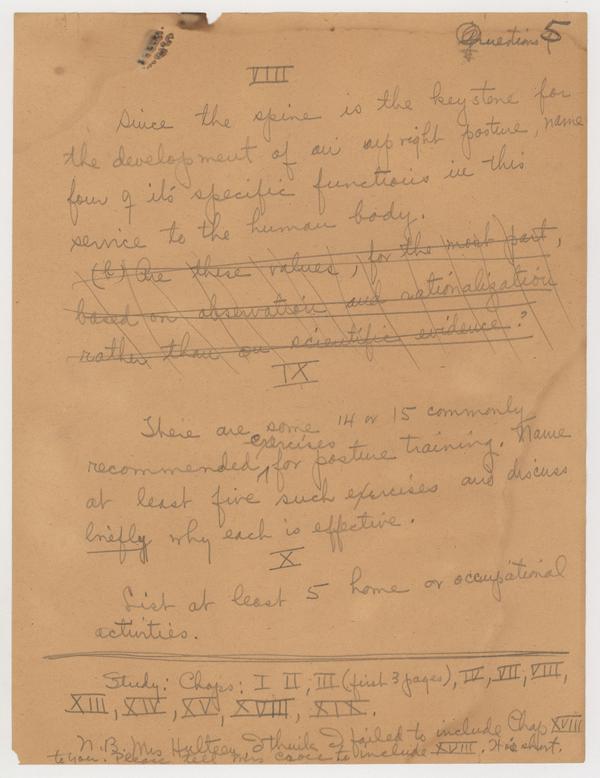 Questions 5
VIII
Since the spine is the keystone for
the development of an upright posture, name
four of it's specific functions in this
service to the human body.
(b) Are these values, for the most part,
based on observation and rationalization
rather than on scientific evidence?
IX
There are some 14 or 15 commonly
recommended exercises for posture training. Name
at least five such exercises and discuss
briefly why each is effective.
X
List at least 5 home or occupational
activities.
Study: Chaps: I II, III (first 3 pages), IV, VII, VIII,
XIII, XIV, XV, XVIII, XIX.
N.B. Mrs Hulteen I think I failed to include Chap XVIII
to you. Please tell Miss to include XVIII. It is short.